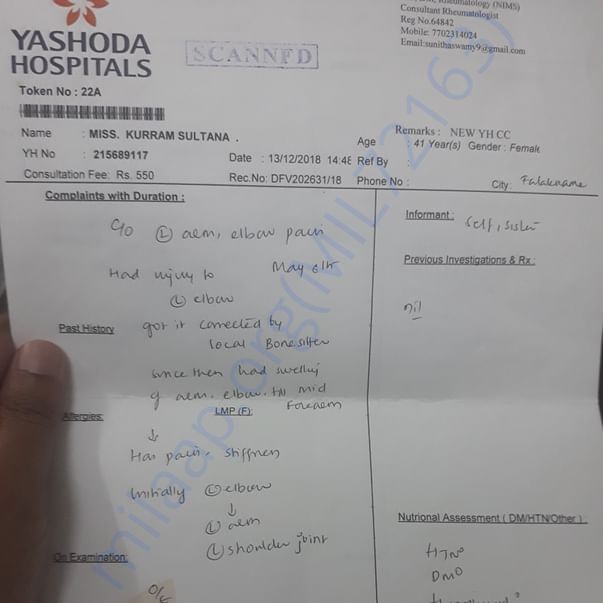 Rheumatology (NIMS)
Consultant Rheumatologist
Reg No.64842
Mobile: 7702314024
Email:sunithaswamy9@gmail.com
YASHODA
HOSPITALS
SCANNED
Token No : 22A
Remarks : NEW YH CC
Name : MISS. KURRAM SULTANA . Age : 41 Year(s) Gender : Female
YH No : 215689117 Date : 13/12/2018 14:48 Ref By :
Consultation Fee: Rs. 550 Rec.No: DFV202631/18 Phone No : City: Falaknama
Complaints with Duration :
C/o (L) arm, elbow pain
Had injury to May 6th
(L) elbow
Past History
got it corrected by
local Bonesitter
since then had swelling
of arm, elbow, till mid
Forearm
Allergies: LMP (F):
↓
Has pain, stiffness
Initially (L) elbow
↓
(L) arm
(L) shoulder joint
On Examination:
O/E
Informant: Self, sister
Previous Investigations & Rx :
nil
Nutrional Assessment ( DM/HTN/Other ) :
HTN0
DM0
milaap.org(MIL72163)